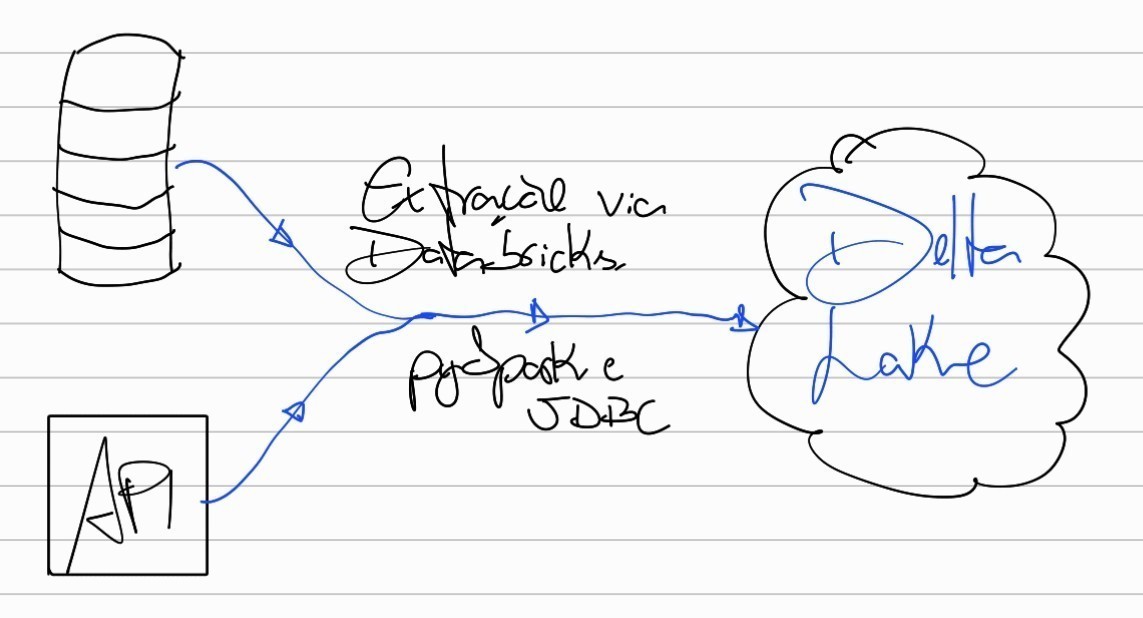 Extração via
Databricks.
pySpark e
JDBC
Delta
Lake
API